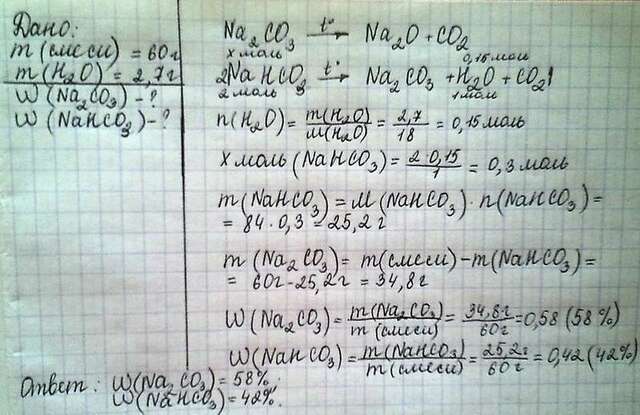 Дано:
m(смеси) = 60г
m(H₂O) = 2,7г
W(Na₂CO₃)-?
W(NaHCO₃)-?
Na₂CO₃ t°→ Na₂O + CO₂
x моль 0,15 моль
2NaHCO₃ t°→ Na₂CO₃ + H₂O + CO₂↑
2 моль 1 моль
n(H₂O) = m(H₂O)/M(H₂O) = 2,7/18 = 0,15 моль
X моль (NaHCO₃) = 2·0,15/1 = 0,3 моль
m(NaHCO₃) = M(NaHCO₃)·n(NaHCO₃) =
= 84·0,3 = 25,2г
m(Na₂CO₃) = m(смеси) - m(NaHCO₃) =
= 60г - 25,2г = 34,8г
W(Na₂CO₃) = m(Na₂CO₃)/m(смеси) = 34,8г/60г = 0,58 (58%)
W(NaHCO₃) = m(NaHCO₃)/m(смеси) = 25,2г/60г = 0,42 (42%)
Ответ: W(Na₂CO₃) = 58%;
W(NaHCO₃) = 42%.